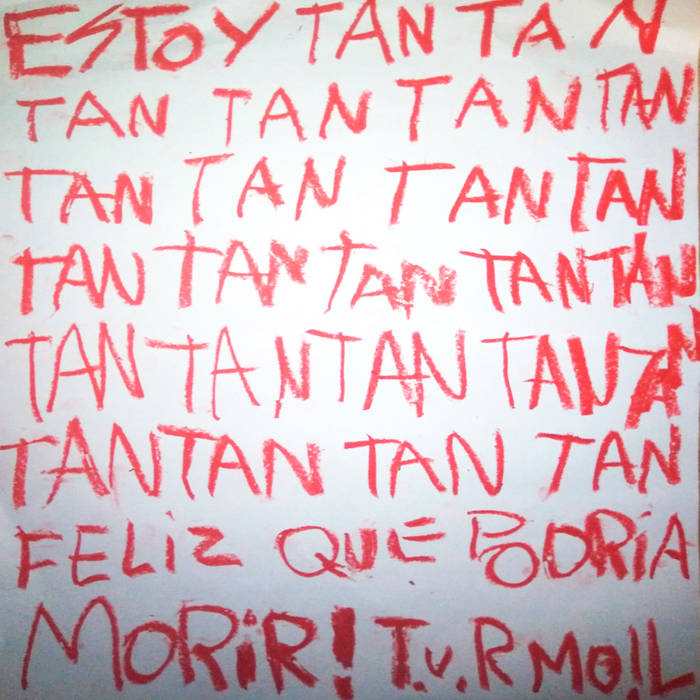 ESTOY TAN TAN
TAN TAN TAN TAN
TAN TAN TAN TAN
TAN TAN TAN TAN TAN
TAN TAN TAN TAN TAN
TAN TAN TAN TAN
FELiZ QUE PODRíA
MORiR! T.V.R MOIL